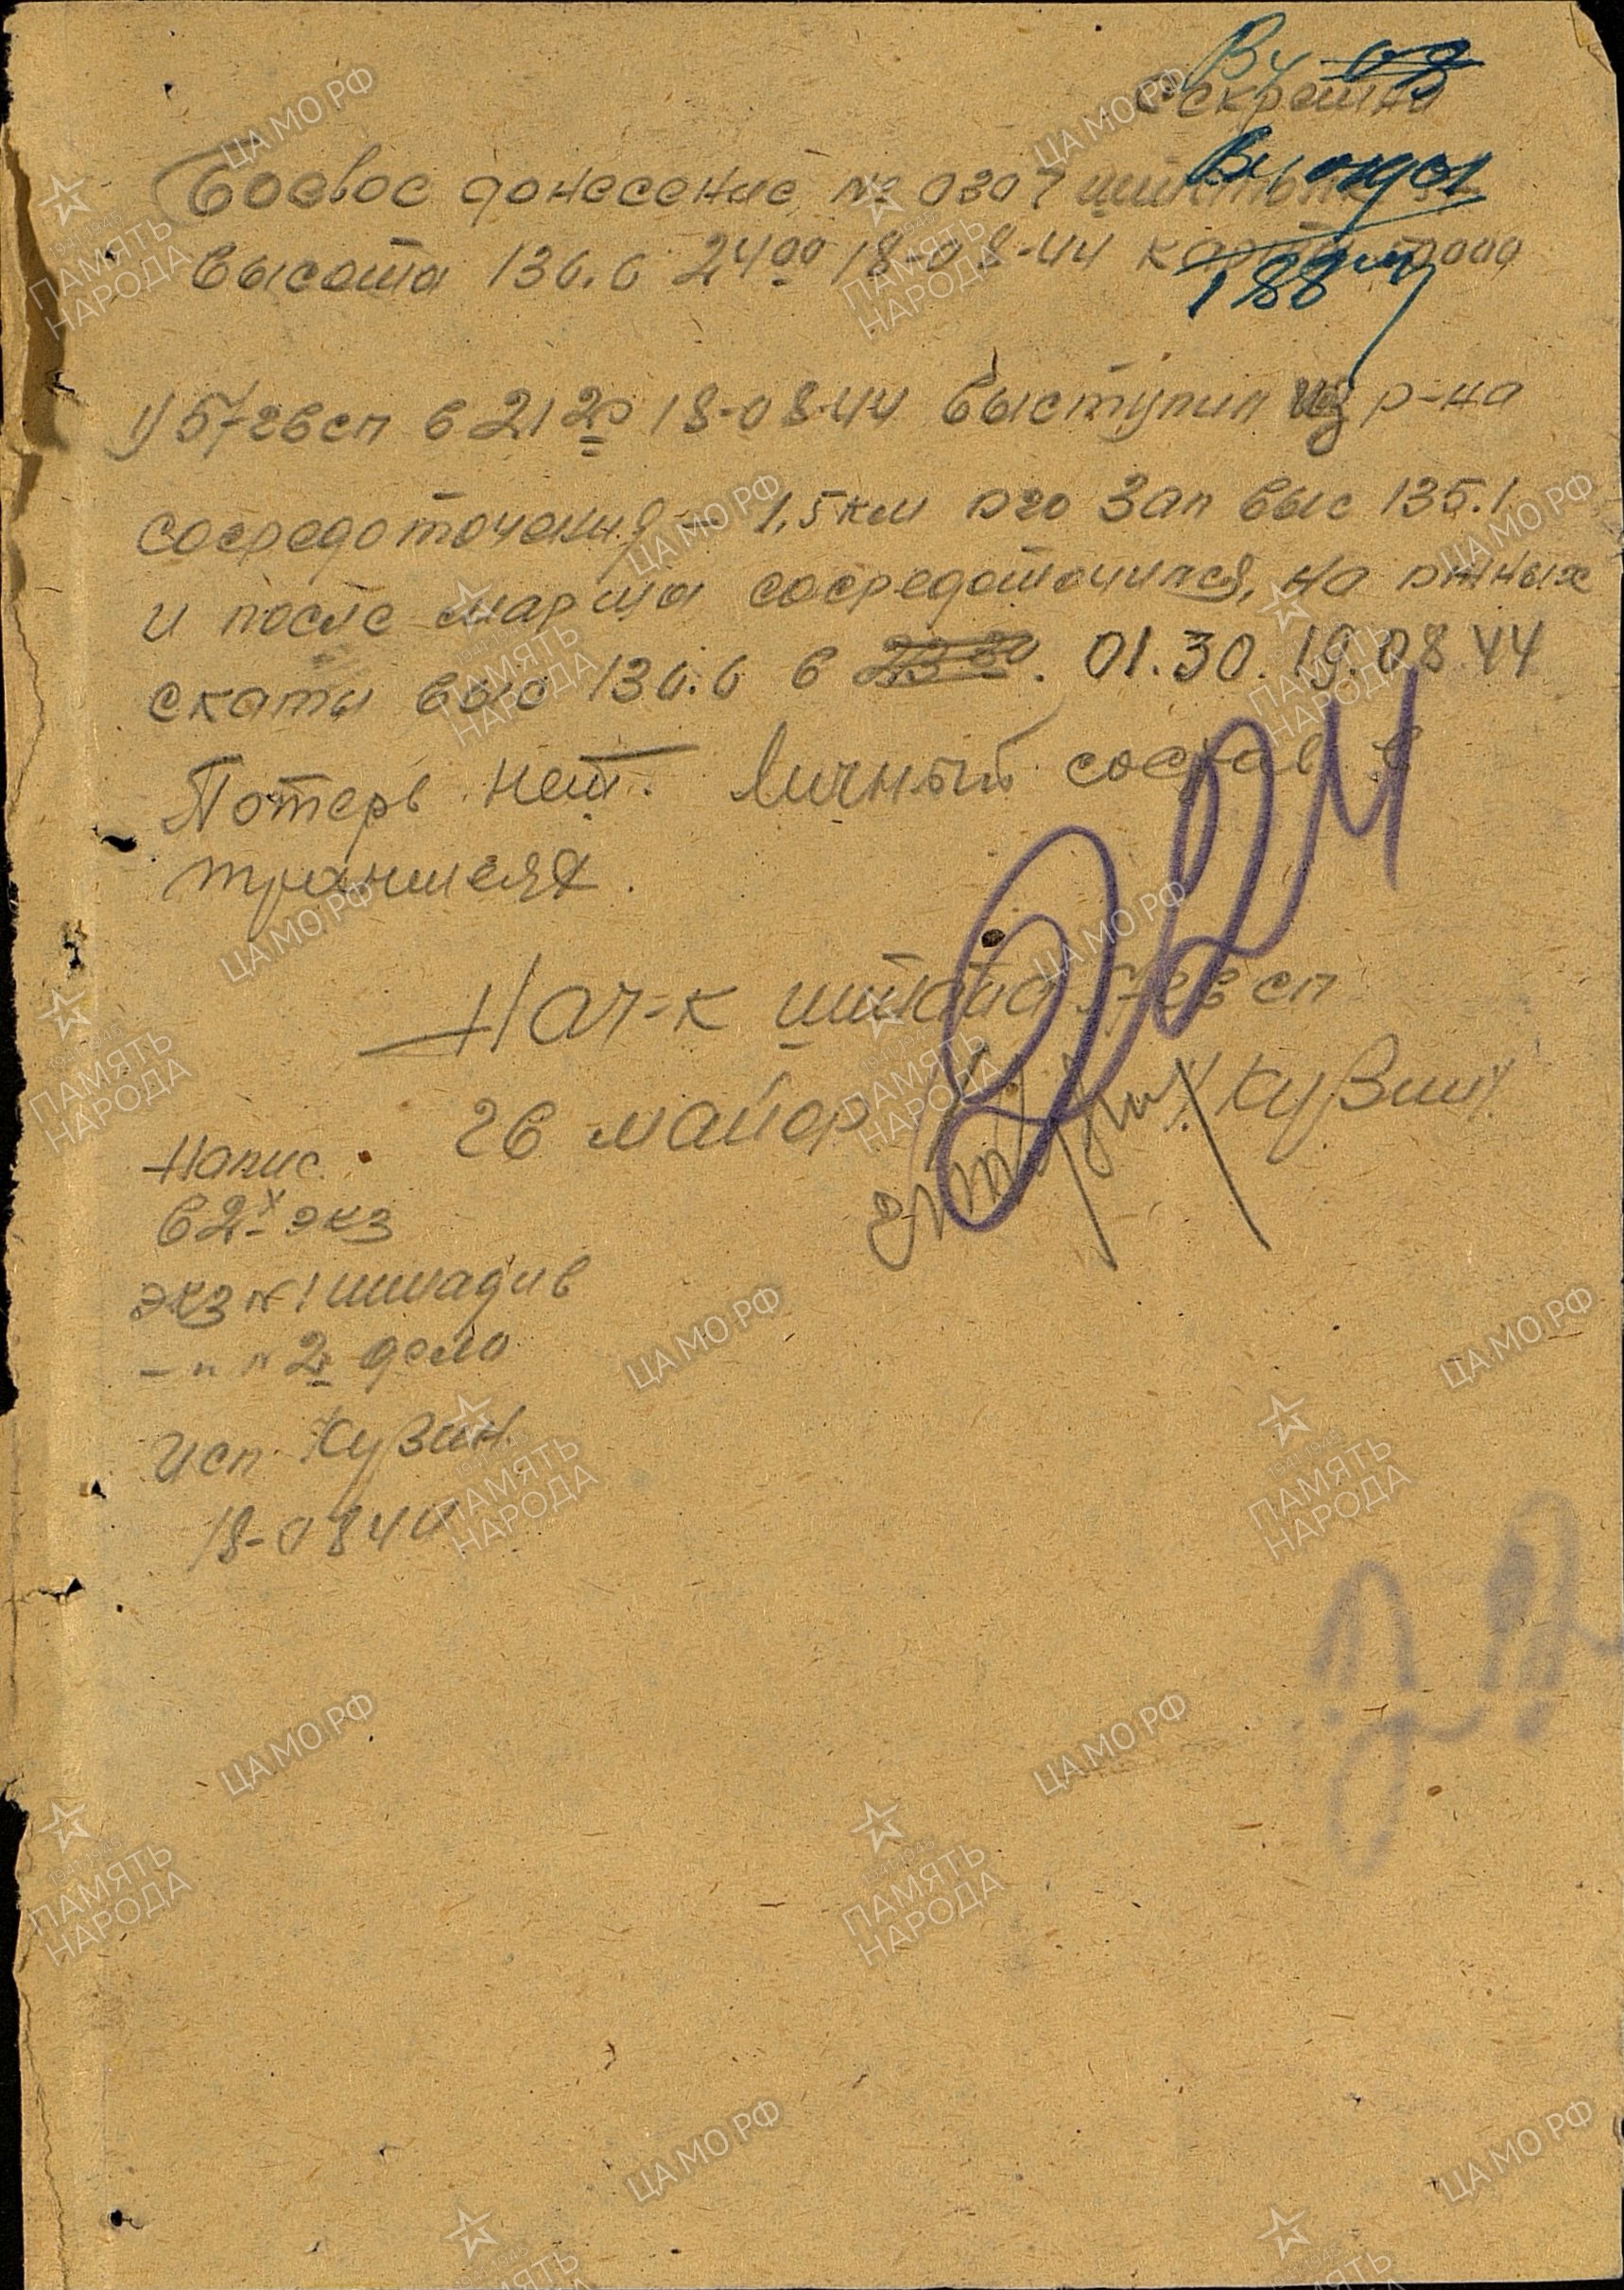 Вх 08
Секретно
Боевое донесение № 0307
высота 130.0 24 00 18-08-44 карта
188
1) 57 гвсп в 21 20 18-08-44 выступил из р-на
сосредоточения - 1,5 км юго зап выс 135.1
и после марша сосредоточился, на южных
скаты выс 130.0 в 23 30. 01.30. 19.08 44
Потерь нет. Личный состав в
траншеях.
224
Нач-к штаба 57 гвсп
гв майор /Кузин/
Напис.
в 2х экз
экз № 1 штадив
-"- " 2 дело
исп Кузин
18-08 44
ЦАМО РФ
ПАМЯТЬ НАРОДА